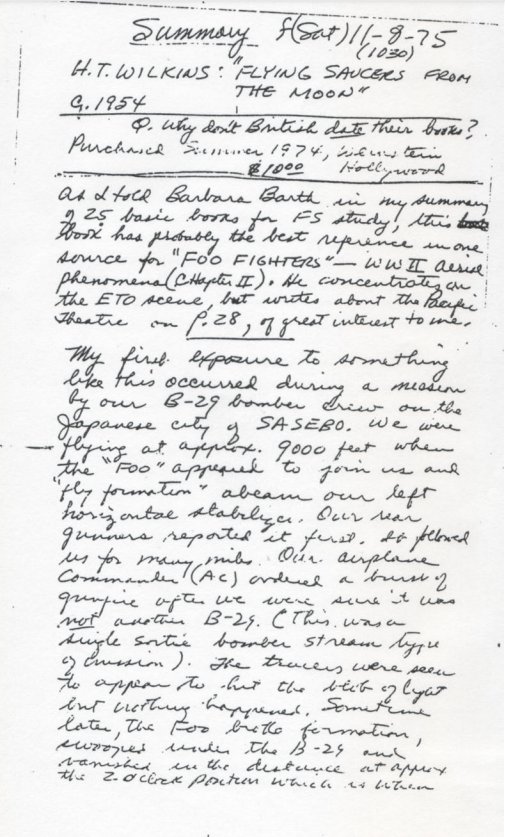 Summary f(Sat) 11-8-75
(1030)
H.T. WILKINS: "FLYING SAUCERS FROM
THE MOON"
C. 1954
Q. Why don't British date their books?
Purchased Summer 1974,
$10.00 Hollywood
As I told Barbara Barth in my summary
of 25 basic books for FS study, this
book has probably the best reference in one
source for "FOO FIGHTERS" — WW II aerial
phenomena (CHapter II). He concentrates on
the ETO scene, but writes about the Pacific
Theatre on P. 28, of great interest to me.
My first exposure to something
like this occurred during a mission
by our B-29 bomber crew on the
Japanese city of SASEBO. We were
flying at approx. 9000 feet when
the "FOO" appeared to join us and
"fly formation" abeam our left
horizontal stabilizer. Our rear
gunners reported it first. It followed
us for many miles. Our airplane
Commander (AC) ordered a burst of
gunfire after we were sure it was
not another B-29. (This was a
single sortie bomber stream type
of mission). The tracers were seen
to appear to hit the blob of light
but nothing happened. Sometime
later, the Foo broke formation,
swooped under the B-29 and
vanished in the distance at approx
the 2-o'clock position which is when